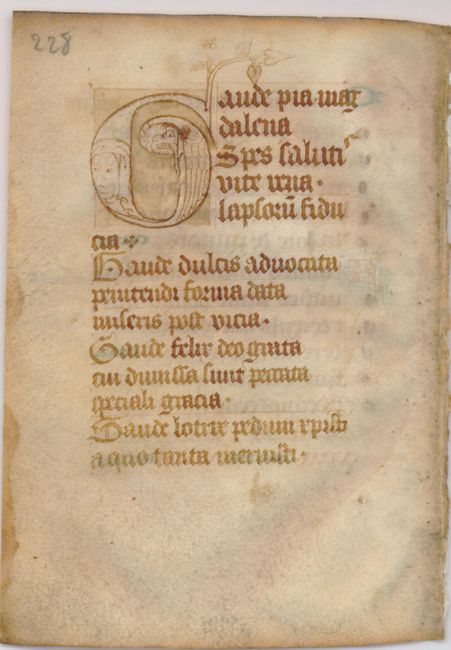 228
Gaude pia mag
dalena
Spes saluti˜
vite vena ·
lapsorū fidu
cia
Gaude dulcis advocata
penitendi forma data
miseris post vicia ·
Gaude felix deo grata
cui dimissa sunt peccata
speciali gracia ·
Gaude lotrix pedum xpisti
a quo tanta meruisti ·